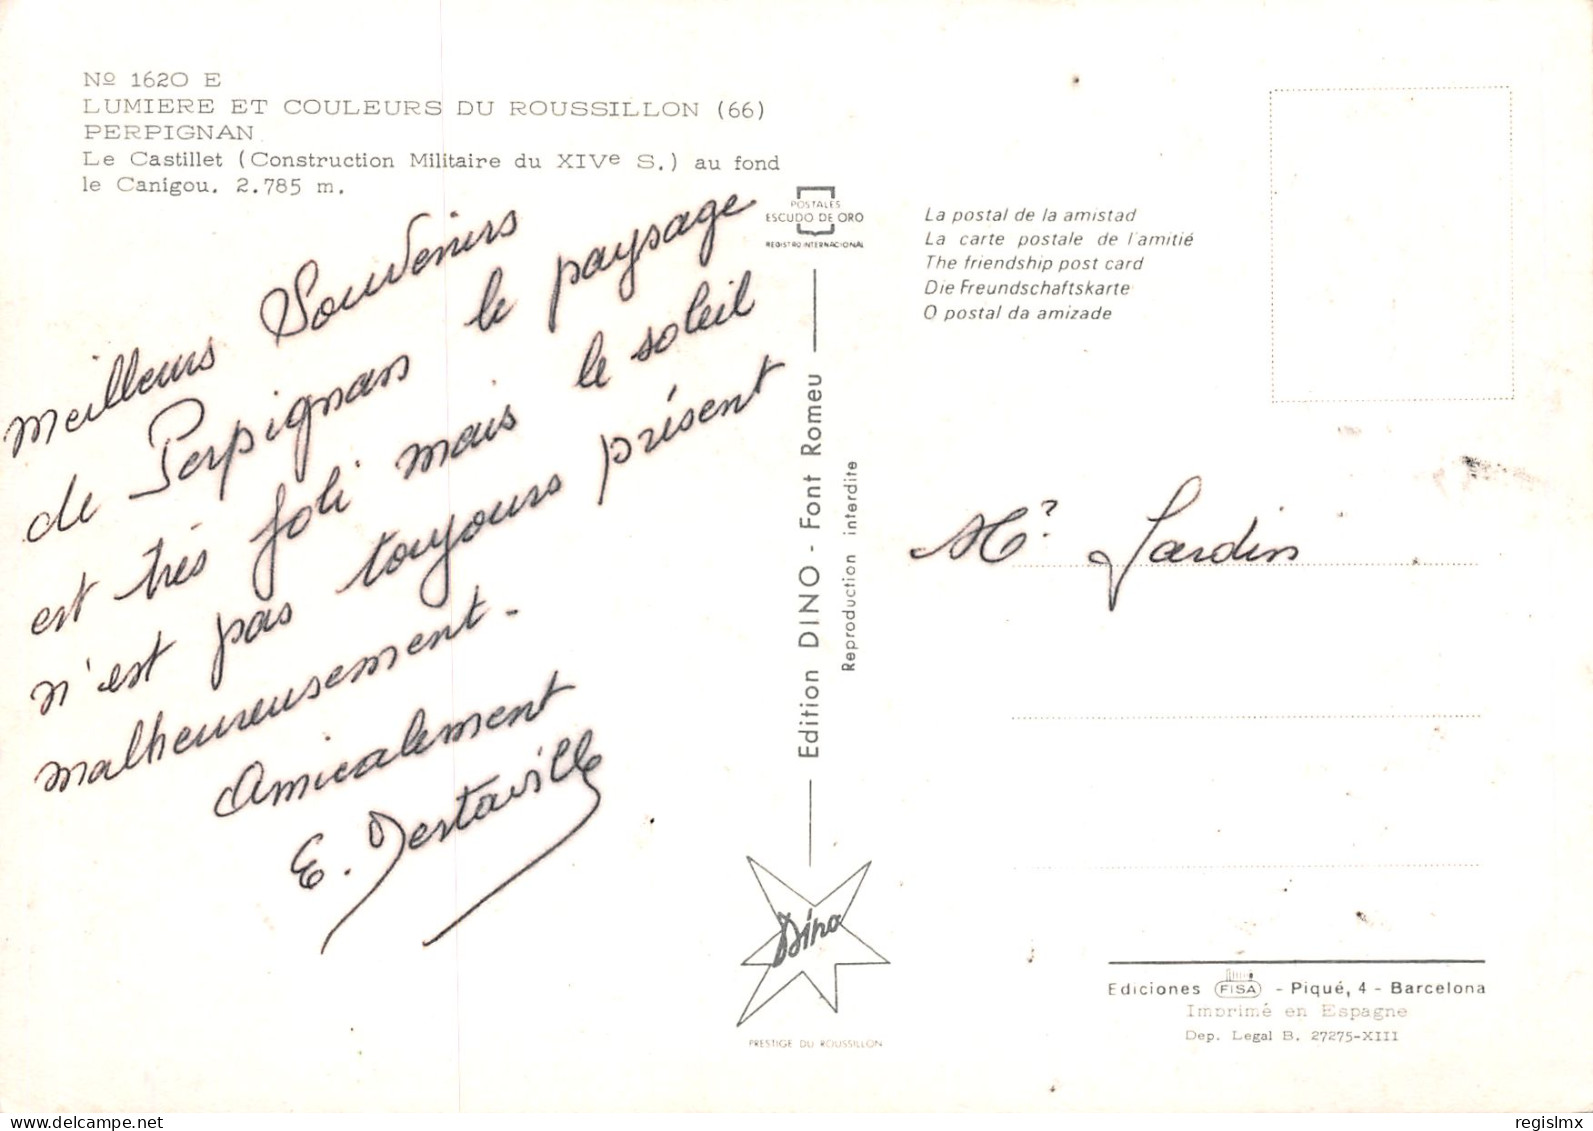 Nº 1620 E
LUMIERE ET COULEURS DU ROUSSILLON (66)
PERPIGNAN
Le Castillet (Construction Militaire du XIVe S.) au fond
le Canigou. 2.785 m.
Meilleurs Souvenirs
de Perpignan le paysage
est très joli mais le soleil
n'est pas toujours présent
malheureusement.
Amicalement
E.
POSTALES
ESCUDO DE ORO
REGISTRO INTERNACIONAL
Edition DINO - Font Romeu
Reproduction interdite
Dino
PRESTIGE DU ROUSSILLON
La postal de la amistad
La carte postale de l'amitié
The friendship post card
Die Freundschaftskarte
O postal da amizade
Mr Jardin
Ediciones FISA - Piqué, 4 - Barcelona
Imprimé en Espagne
Dep. Legal B. 27275-XIII
www.delcampe.net
regislmx